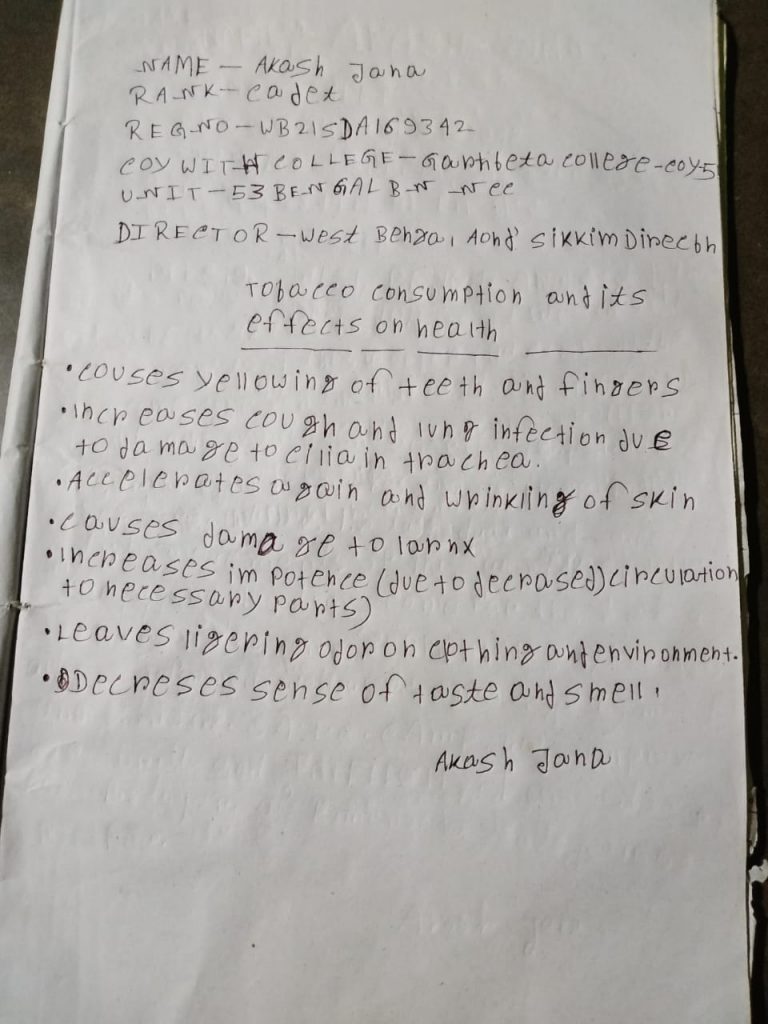 NAME - Akash Jana
RANK - cadet
REG-NO - WB21SDA169342
COY WITH COLLEGE - Garhbeta college-coy-5
UNIT - 53 BENGAL BN NCC
DIRECTOR - West Bengal Aond sikkim Directn
Tobacco consumption and its
effects on health
• couses yellowing of teeth and fingers
• Increases cough and lung infection due
to damage to cilia in trachea.
• Accelerates again and wrinkling of skin
• causes damage to larnx
• Increases impotence (due to decrased) circulation
to necessary parts)
• Leaves ligering odor on clothing and environment.
• Decreses sense of taste and smell.
Akash Jana